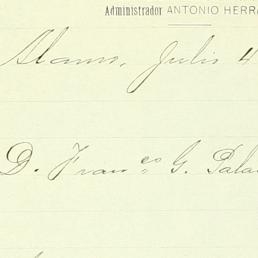 Administrador ANTONIO HERRA
Alamo, Julio 4
D. Fran.co G. Pala